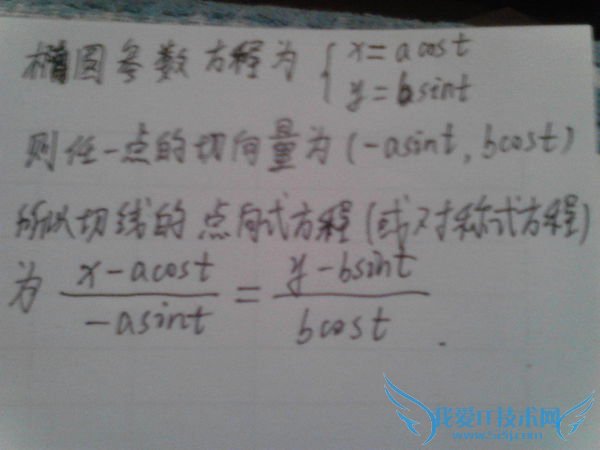 椭圆参数方程为 { x = a cos t
y = b sin t
则任一点的切向量为 (-a sin t, b cos t)
所以切线的点向式方程 (或对称式方程)
为 (x - a cos t)/(-a sin t) = (y - b sin t)/(b cos t) .
我爱IT技术网